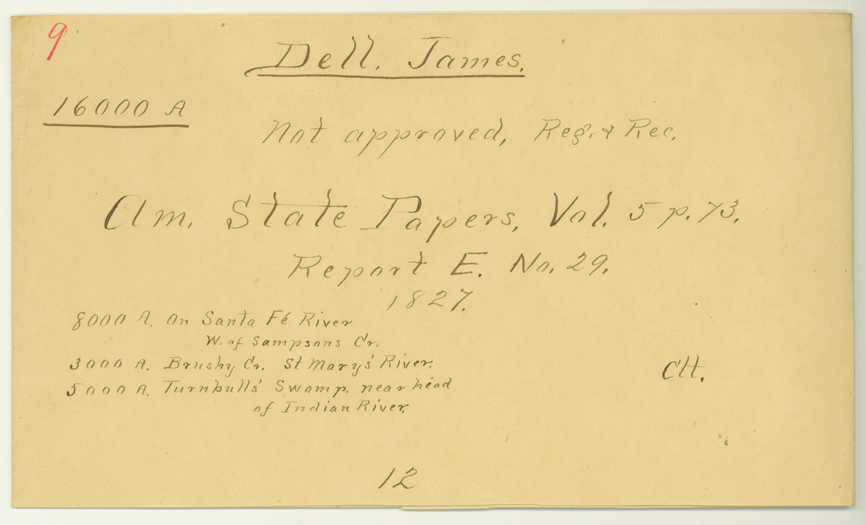 9
Dell. James.
16000 A
Not approved, Reg. & Rec.
Am. State Papers, Vol. 5 p. 73.
Report E. No. 29.
1827.
8000 A. On Santa Fé River
W. of Sampsons Cr.
3000 A. Brushy Cr. St Mary's River.
5000 A. Turnbulls' Swamp. near head
of Indian River.
12